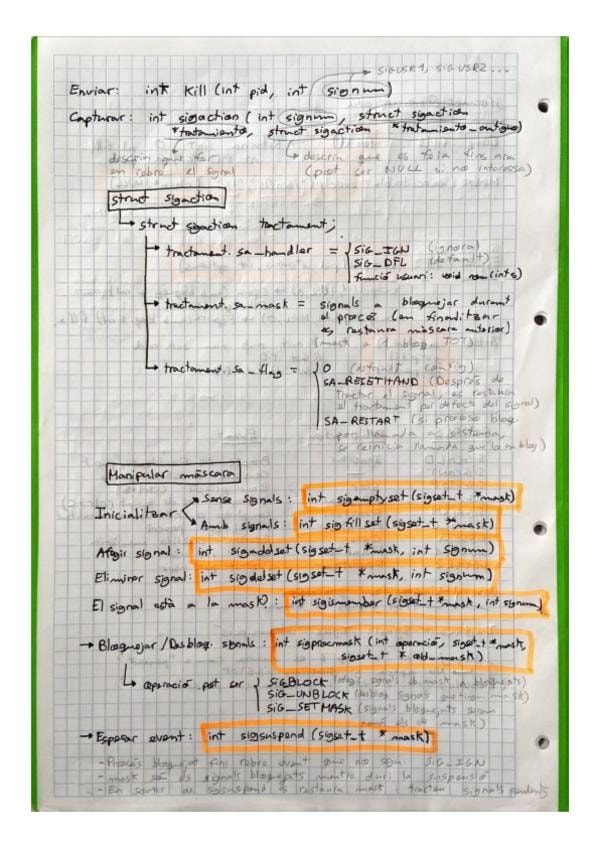 SIGUSR1, SIGUSR2 ...
Enviar: int Kill (int pid, int signum)
Capturar: int sigaction (int signum, struct sigaction
*tratamiento, struct sigaction *tratamiento_antiguo)
descriu què fer
en rebre el signal
descriu què es feia fins ara
(pot ser NULL si no interessa)
struct sigaction
struct sigaction tractament;
tractament.sa_handler = SIG_IGN (ignora)
SIG_DFL (default)
funció usuari: void nom (int s)
tractament.sa_mask = signals a bloquejar durant
el procés (en finalitzar
es restaura màscara anterior)
(mask a 1 bloq. TOT)
tractament.sa_flag = 0 (default config)
SA_RESETHAND (Després de
tractar el signal, es restaura
el tractament per defecte del signal)
SA_RESTART (si proceso bloq.
por llamada a sistema,
se reinicia llamada que lo ha bloq.)
Manipular màscara
Inicialitzar
Sense signals: int sigemptyset (sigset_t *mask)
Amb signals: int sigfillset (sigset_t *mask)
Afegir signal: int sigaddset (sigset_t *mask, int signum)
Eliminar signal: int sigdelset (sigset_t *mask, int signum)
El signal està a la mask?: int sigismember (sigset_t *mask, int signum)
→ Bloquejar/Desbloq. signals: int sigprocmask (int operació, sigset_t *mask,
sigset_t * old_mask)
operació pot ser SIG_BLOCK (afegir signals de mask a bloquejats)
SIG_UNBLOCK (desbloq signals que mask)
SIG_SETMASK (signals bloquejats seran
només els de mask)
→ Esperar event: int sigsuspend (sigset_t * mask)
- Procés bloquejat fins rebre event que no sigui SIG_IGN
- mask són els signals bloquejats mentre duri la suspensió
- En sortir de sigsuspend es restaura mask i tracten signals pendents